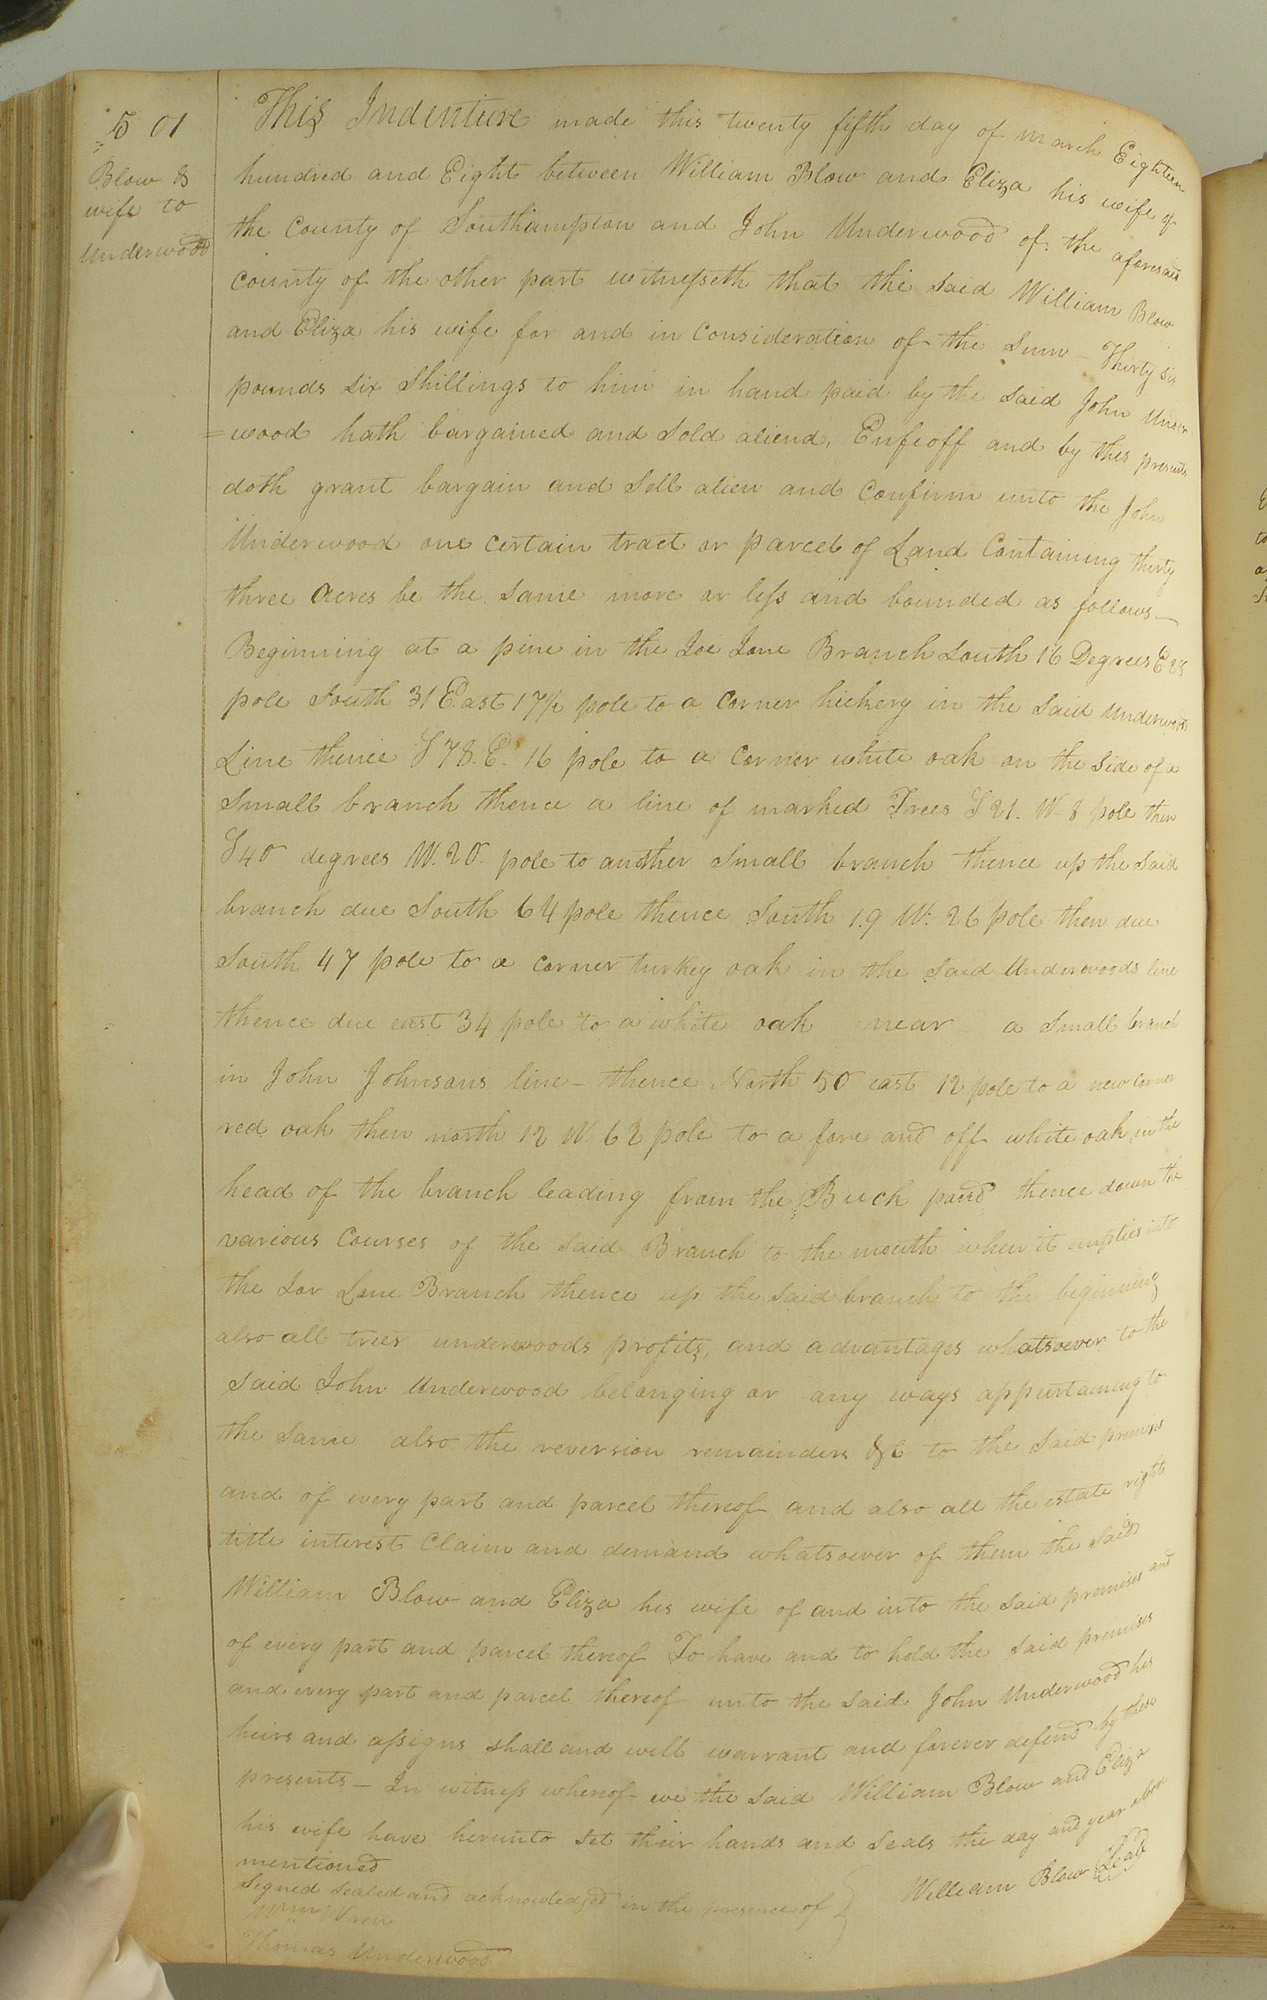 501
Blow &
wife to
Underwood
This Indenture made this twenty fifth day of march Eighteen
hundred and Eight between William Blow and Eliza his wife of
the County of Southampton and John Underwood of the aforesaid
County of the other part witnesseth that the said William Blow
and Eliza his wife for and in Consideration of the Sum - Thirty six
pounds six Shillings to him in hand paid by the said John Under
=wood hath bargained and sold aliend, Enfeoff and by thes presents
doth grant bargain and Sell alien and Confirm unto the John
Underwood one certain tract or parcel of Land Containing thirty
three Acres be the same more or less and bounded as follows—
Beginning at a pine in the Joe Lane Branch South 16 Degrees E 28
pole South 31 East 17½ pole to a Corner hickery in the said Underwoods
Line thence S 78. E. 16 pole to a Corner white oak on the side of a
Small branch thence a line of marked Trees S 21. W. 8 pole then
S 40 degrees W. 20. pole to another Small branch thence up the said
branch due South 64 pole thence South 19 W. 26 pole then due
South 47 pole to a Corner turkey oak in the said Underwoods line
thence due east 34 pole to a white oak near a Small branch
in John Johnsons line - thence North 50 east 12 pole to a new Corner
red oak then north 12 W. 62 pole to a fore and off white oak in the
head of the branch leading from the Buck pond thence down the
various Courses of the said Branch to the mouth when it empties into
the Lane Branch thence up the said branch to the beginning
also all trees underwoods profits, and advantages whatsoever to the
said John Underwood belonging or any ways appurtaining to
the same also the reversion remainders &c to the said premises
and of every part and parcel thereof and also all the estate right
title interest Claim and demand whatsoever of them the said
William Blow and Eliza his wife of and into the said premises and
of every part and parcel thereof To have and to hold the said premises
and every part and parcel thereof unto the said John Underwood his
heirs and assigns shall and will warrant and forever defend by these
presents - In witness whereof we the said William Blow and Eliza
his wife have herunto set their hands and Seals the day and year above
mentioned
Signed Sealed and acknowledged in the presence of } William Blow Seal
Wm Wren
Thomas Underwood